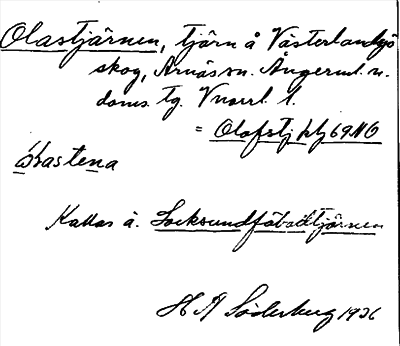 Olastjärnen, tjärn å Västerlandsjö
skog, Arnäs sn. Ångerml. n.
doms. tg. Vnorrl. l.
= Olofstj hbj 69 NO
åɩastena
Kallas ä. Locksundfäbodtjärnen
H A Söderberg 1936